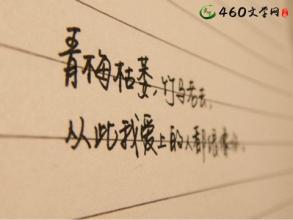 460文学网
青梅枯萎,竹马老去,
从此我爱上的人都很像你.